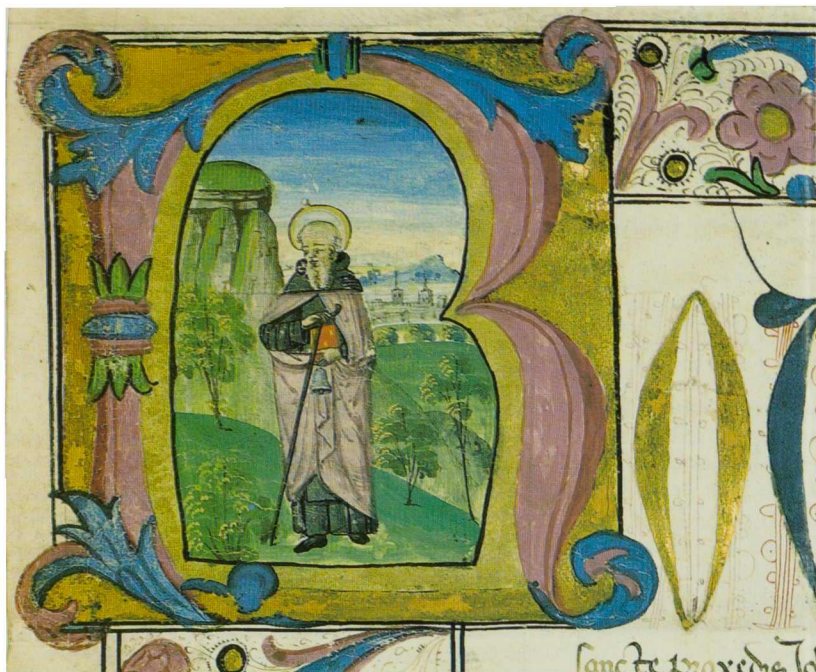 RO
sancte praxedis